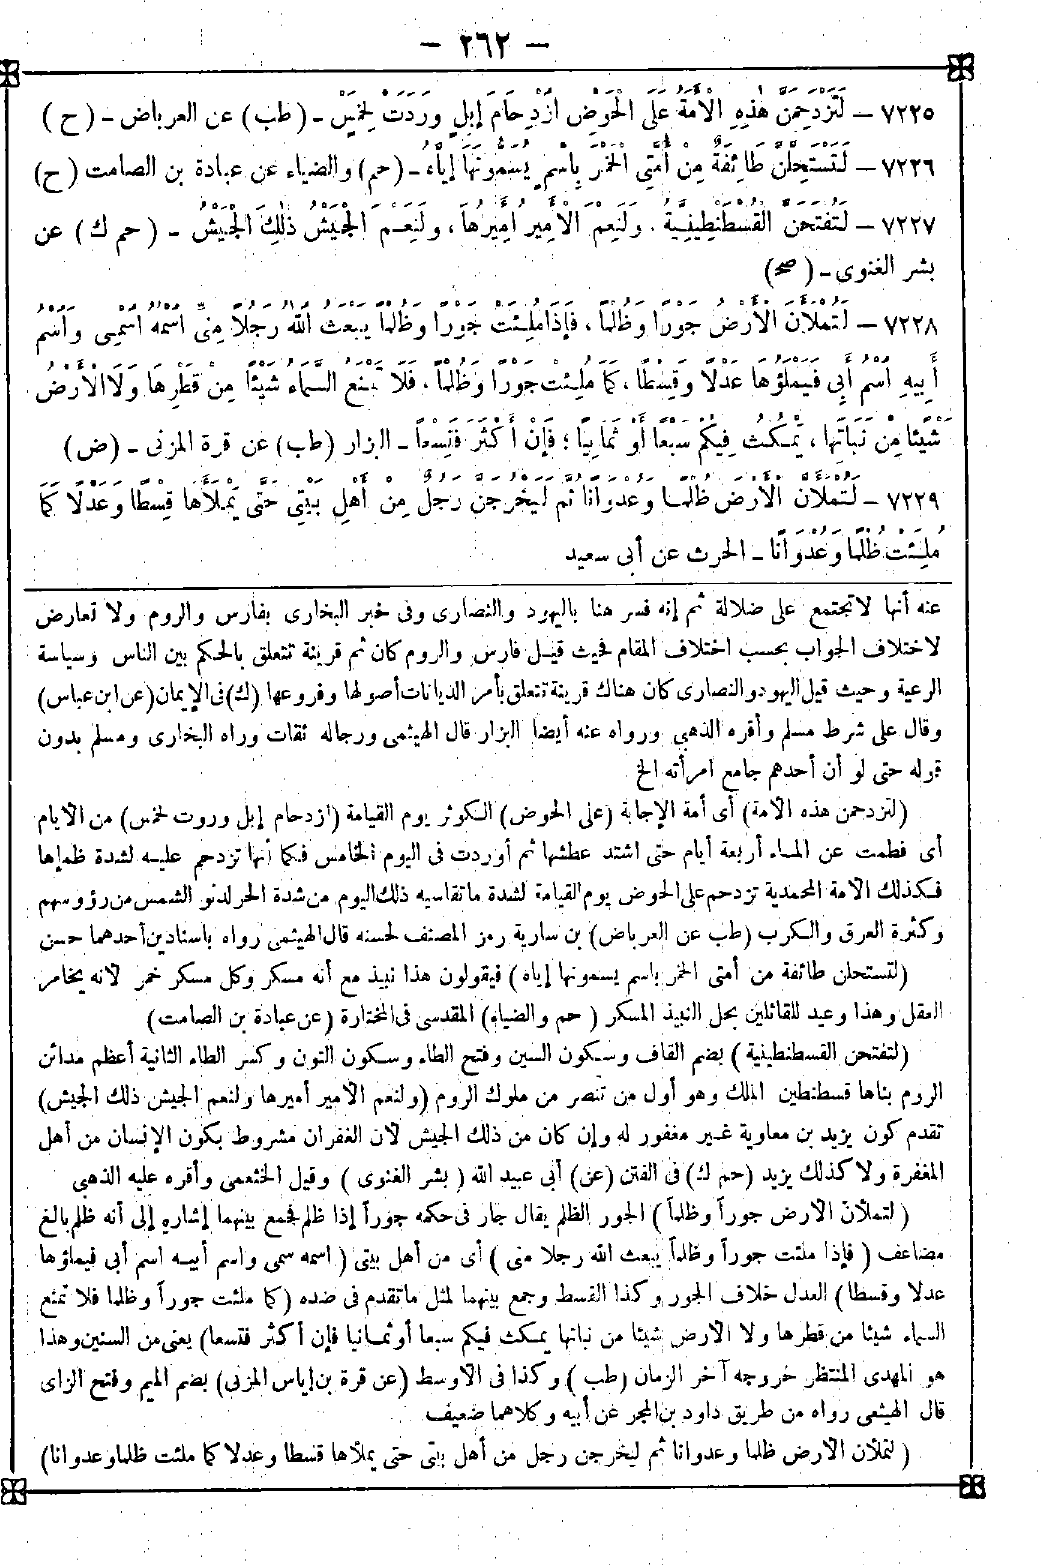 — ٢٦٢ —
٧٢٢٥ — لَتَزْدَحِمَنَّ هٰذِهِ الْأُمَّةُ عَلَى الْحَوْضِ ازْدِحَامَ إِبِلٍ وَرَدَتْ لِخَمْسٍ - (طب) عن العرباض - (ح)
٧٢٢٦ — لَتَسْتَحِلَّنَّ طَائِفَةٌ مِنْ أُمَّتِي الْخَمْرَ بِاسْمٍ يُسَمُّونَهَا إِيَّاهُ - (حم) والضياء عن عبادة بن الصامت (ح)
٧٢٢٧ — لَتُفْتَحَنَّ الْقُسْطَنْطِينِيَّةُ، وَلَنِعْمَ الْأَمِيرُ أَمِيرُهَا، وَلَنِعْمَ الْجَيْشُ ذٰلِكَ الْجَيْشُ - (حم ك) عن
بشر الغنوى - (صح)
٧٢٢٨ — لَتُمْلَأَنَّ الْأَرْضُ جَوْرًا وَظُلْمًا، فَإِذَا مُلِئَتْ جَوْرًا وَظُلْمًا يَبْعَثُ اللهُ رَجُلًا مِنِّي اسْمُهُ اسْمِي وَاسْمُ
أَبِيهِ اسْمُ أَبِي فَيَمْلَؤُهَا عَدْلًا وَقِسْطًا، كَمَا مُلِئَتْ جَوْرًا وَظُلْمًا، فَلَا تَمْنَعُ السَّمَاءُ شَيْئًا مِنْ قَطْرِهَا وَلَا الْأَرْضُ
شَيْئًا مِنْ نَبَاتِهَا، يَمْكُثُ فِيكُمْ سَبْعًا أَوْ ثَمَانِيًا؛ فَإِنْ أَكْثَرَ فَتِسْعًا - البزار (طب) عن قرة المزنى - (ض)
٧٢٢٩ — لَتُمْلَأَنَّ الْأَرْضُ ظُلْمًا وَعُدْوَانًا ثُمَّ لَيَخْرُجَنَّ رَجُلٌ مِنْ أَهْلِ بَيْتِي حَتَّى يَمْلَأَهَا قِسْطًا وَعَدْلًا كَمَا
مُلِئَتْ ظُلْمًا وَعُدْوَانًا - الحرث عن أبى سعيد
عنه أنها لا تجتمع على ضلالة ثم إنه فسر هنا باليهود والنصارى وفى خبر البخارى بفارس والروم ولا تعارض
لاختلاف الجواب بحسب اختلاف المقام فحيث قيل فارس والروم كان ثم قرينة تتعلق بالحكم بين الناس وسياسة
الرعية وحيث قيل اليهود والنصارى كان هناك قرينة تتعلق بأمر الديانات أصولها وفروعها (ك) فى الإيمان (عن ابن عباس)
وقال على شرط مسلم وأقره الذهبى ورواه عنه أيضا البزار قال الهيثمى ورجاله ثقات وراه البخارى ومسلم بدون
قوله حتى لو أن أحدهم جامع امرأته الخ
(لتزدحمن هذه الأمة) أى أمة الإجابة (على الحوض) الكوثر يوم القيامة (ازدحام إبل وروت لخمس) من الأيام
أى فطمت عن الماء أربعة أيام حتى اشتد عطشها ثم أوردت فى اليوم الخامس فكما أنها تزدحم عليه لشدة ظمإها
فكذلك الأمة المحمدية تزدحم على الحوض يوم القيامة لشدة ما تقاسيه ذلك اليوم من شدة الحر لدنو الشمس من رؤوسهم
وكثرة العرق والكرب (طب عن العرباض) بن سارية رمز المصنف لحسنه قال الهيثمى رواه باسنادين أحدهما حسن
(لتستحلن طائفة من أمتى الخمر باسم يسمونها إياه) فيقولون هذا نبيذ مع أنه مسكر وكل مسكر خمر لأنه يخامر
العقل وهذا وعيد للقائلين بحل النبيذ المسكر (حم والضياء) المقدسى فى المختارة (عن عبادة بن الصامت)
(لتفتحن القسطنطينية) بضم القاف وسكون السين وفتح الطاء وسكون النون وكسر الطاء الثانية أعظم مدائن
الروم بناها قسطنطين الملك وهو أول من تنصر من ملوك الروم (ولنعم الأمير أميرها ولنعم الجيش ذلك الجيش)
تقدم كون يزيد بن معاوية غير مغفور له وإن كان من ذلك الجيش لأن الغفران مشروط بكون الإنسان من أهل
المغفرة ولا كذلك يزيد (حم ك) فى الفتن (عن) أبى عبيد الله (بشر الغنوى) وقيل الخثعمى وأقره عليه الذهبى
(لتملأن الأرض جوراً وظلماً) الجور الظلم يقال جار فى حكمه جوراً إذا ظلم فجمع بينهما إشارة إلى أنه ظلم بالغ
مضاعف (فإذا ملئت جوراً وظلماً يبعث الله رجلا منى) أى من أهل بيتى (اسمه سمى واسم أبيه اسم أبى فيملؤها
عدلا وقسطا) العدل خلاف الجور وكذا القسط وجمع بينهما لمثل ما تقدم فى ضده (كما ملئت جوراً وظلما فلا تمنع
السماء شيئا من قطرها ولا الأرض شيئا من نباتها يمكث فيكم سبعا أو ثمانيا فإن أكثر فتسعا) يعنى من السنين وهذا
هو المهدى المنتظر خروجه آخر الزمان (طب) وكذا فى الأوسط (عن قرة بن إياس المزنى) بضم الميم وفتح الزاى
قال الهيثمى رواه من طريق داود بن المحبر عن أبيه وكلاهما ضعيف
(لتملأن الأرض ظلما وعدوانا ثم ليخرجن رجل من أهل بيتى حتى يملأها قسطا وعدلا كما ملئت ظلما وعدوانا)